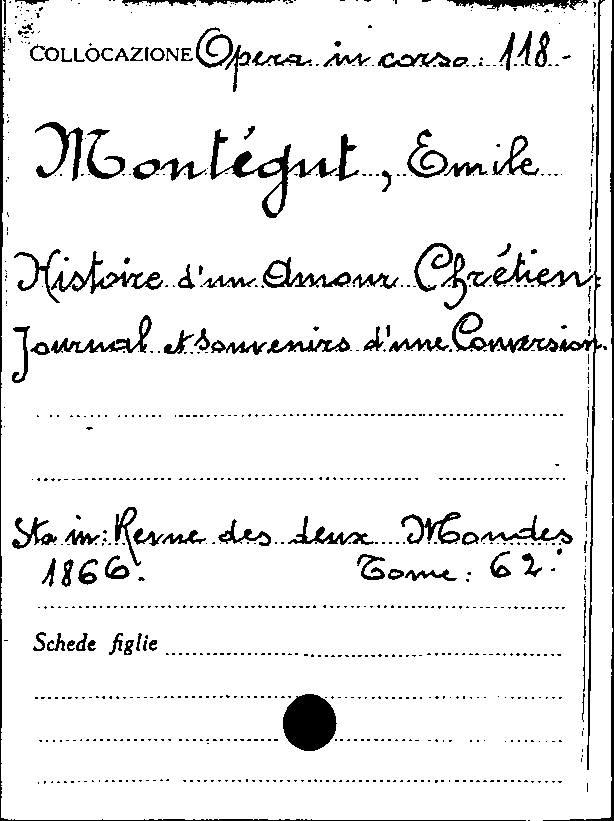 COLLOCAZIONE Opera in corso: 118-
Montégut, Emile
Histoire d'un Amour Chrétien:
Journal et Souvenirs d'une Conversion.
Sta in: Revue des deux Mondes
1866. Tome: 62.
Schede figlie